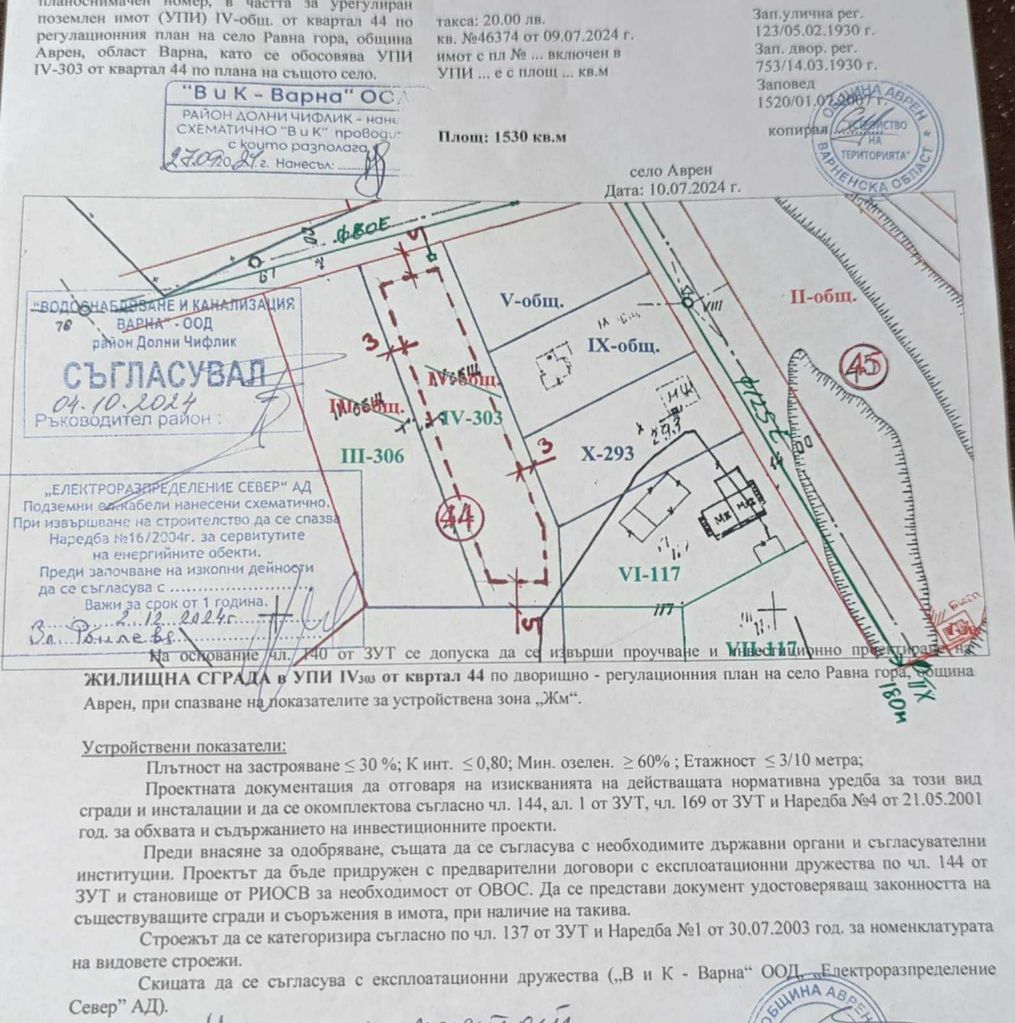 планоснимачен номер, в частта за урегулиран
поземлен имот (УПИ) IV-общ. от квартал 44 по
регулационния план на село Равна гора, община
Аврен, област Варна, като се обособява УПИ
IV-303 от квартал 44 по плана на същото село.
такса: 20.00 лв.
кв. №46374 от 09.07.2024 г.
имот с пл № ... включен в
УПИ ... е с площ ... кв.м
Площ: 1530 кв.м
Зап.улична рег.
123/05.02.1930 г.
Зап. двор. рег.
753/14.03.1930 г.
Заповед
1520/01.07.2007 г.
копирал
ОБЩИНА АВРЕН
УСТРОЙСТВО
НА
ТЕРИТОРИЯТА"
ВАРНЕНСКА ОБЛАСТ
"В и К - Варна" ОС
РАЙОН ДОЛНИ ЧИФЛИК - нане
СХЕМАТИЧНО "В и К" проводи
с които разполага
27.09.2024 г. Нанесъл:
село Аврен
Дата: 10.07.2024 г.
Ф80Е
5
V-общ.
II-общ.
IX-общ.
45
"ВОДОСНАБДЯВАНЕ И КАНАЛИЗАЦИЯ
ВАРНА" - ООД
район Долни Чифлик
СЪГЛАСУВАЛ
04.10.2024
Ръководител район :
76
3
IV-общ.
III-общ.
IV-303
III-306
МЖ
293
X-293
3
44
МЖ МЖ
VI-117
117
VII-117
5
180м
„ЕЛЕКТРОРАЗПРЕДЕЛЕНИЕ СЕВЕР" АД
Подземни ел.кабели нанесени схематично.
При извършване на строителство да се спазва
Наредба №16/2004г. за сервитутите
на енергийните обекти.
Преди започване на изкопни дейности
да се съгласува с
Важи за срок от 1 година.
2.12.2024г.
На основание чл. 140 от ЗУТ се допуска да се извърши проучване и инвестиционно проектиране на
ЖИЛИЩНА СГРАДА в УПИ IV303 от квртал 44 по дворищно - регулационния план на село Равна гора, община
Аврен, при спазване на показателите за устройствена зона „Жм“.
Устройствени показатели:
Плътност на застрояване ≤ 30 %; К инт. ≤ 0,80; Мин. озелен. ≥ 60% ; Етажност ≤ 3/10 метра;
Проектната документация да отговаря на изискванията на действащата нормативна уредба за този вид
сгради и инсталации и да се окомплектова съгласно чл. 144, ал. 1 от ЗУТ, чл. 169 от ЗУТ и Наредба №4 от 21.05.2001
год. за обхвата и съдържанието на инвестиционните проекти.
Преди внасяне за одобряване, същата да се съгласува с необходимите държавни органи и съгласувателни
институции. Проектът да бъде придружен с предварителни договори с експлоатационни дружества по чл. 144 от
ЗУТ и становище от РИОСВ за необходимост от ОВОС. Да се представи документ удостоверяващ законността на
съществуващите сгради и съоръжения в имота, при наличие на такива.
Строежът да се категоризира съгласно по чл. 137 от ЗУТ и Наредба №1 от 30.07.2003 год. за номенклатурата
на видовете строежи.
Скицата да се съгласува с експлоатационни дружества („В и К - Варна“ ООД, „Електроразпределение
Север” АД).
ОБЩИНА АВРЕН